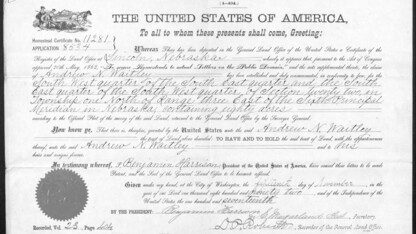 THE UNITED STATES OF AMERICA,
To all to whom these presents shall come, Greeting:
Homestead Certificate No. 11281
APPLICATION 8554
Whereas There has been deposited in the General Land Office of the United States a Certificate of the
Register of the Land Office at Lincoln, Nebraska, whereby it appears that, pursuant to the Act of Congress
approved 20th May, 1862, "To secure Homesteads to Actual Settlers on the Public Domain," and the acts supplemental thereto, the claim of
Andrew N. Waitley has been established and duly consummated, in conformity to law, for the
South West quarter of the South East quarter and the South
East quarter of the South West quarter of Section twenty two in
Township one North of Range three East of the Sixth Principal
Meridian in Nebraska containing eighty acres
according to the Official Plat of the survey of the said Land, returned to the General Land Office by the Surveyor General.
Now know ye, That there is, therefore, granted by the United States unto the said Andrew N. Waitley
the tract of Land above described: TO HAVE AND TO HOLD the said tract of Land, with the appurtenances
thereof, unto the said Andrew N. Waitley and to his
heirs and assigns forever.
In testimony whereof, I, Benjamin Harrison, President of the United States of America, have caused these letters to be made
Patent, and the Seal of the General Land Office to be hereunto affixed.
Given under my hand, at the City of Washington, the day of , in the
year of our Lord one thousand eight hundred and ninety two, and of the Independence of the
United States the one hundred and seventeenth
BY THE PRESIDENT: Benjamin Harrison
Recorded, Vol. 23, Page
Recorder of the General Land Office.